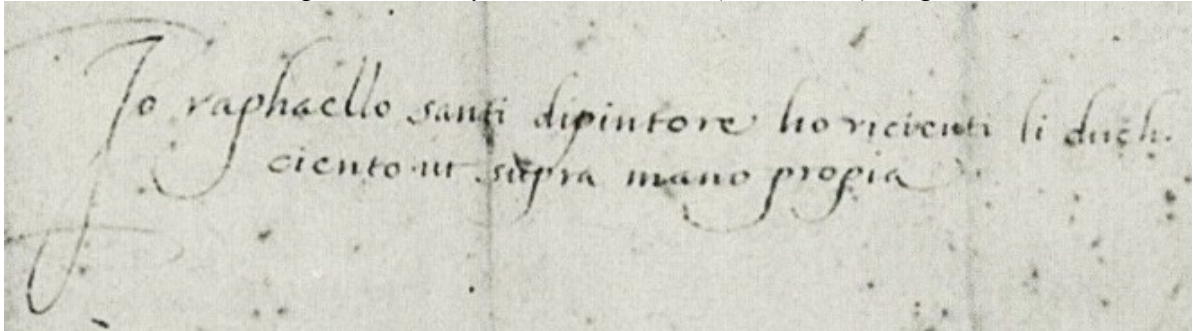 Io raphaello santi dipintore ho ricieuti li duch.
ciento ut supra mano propia